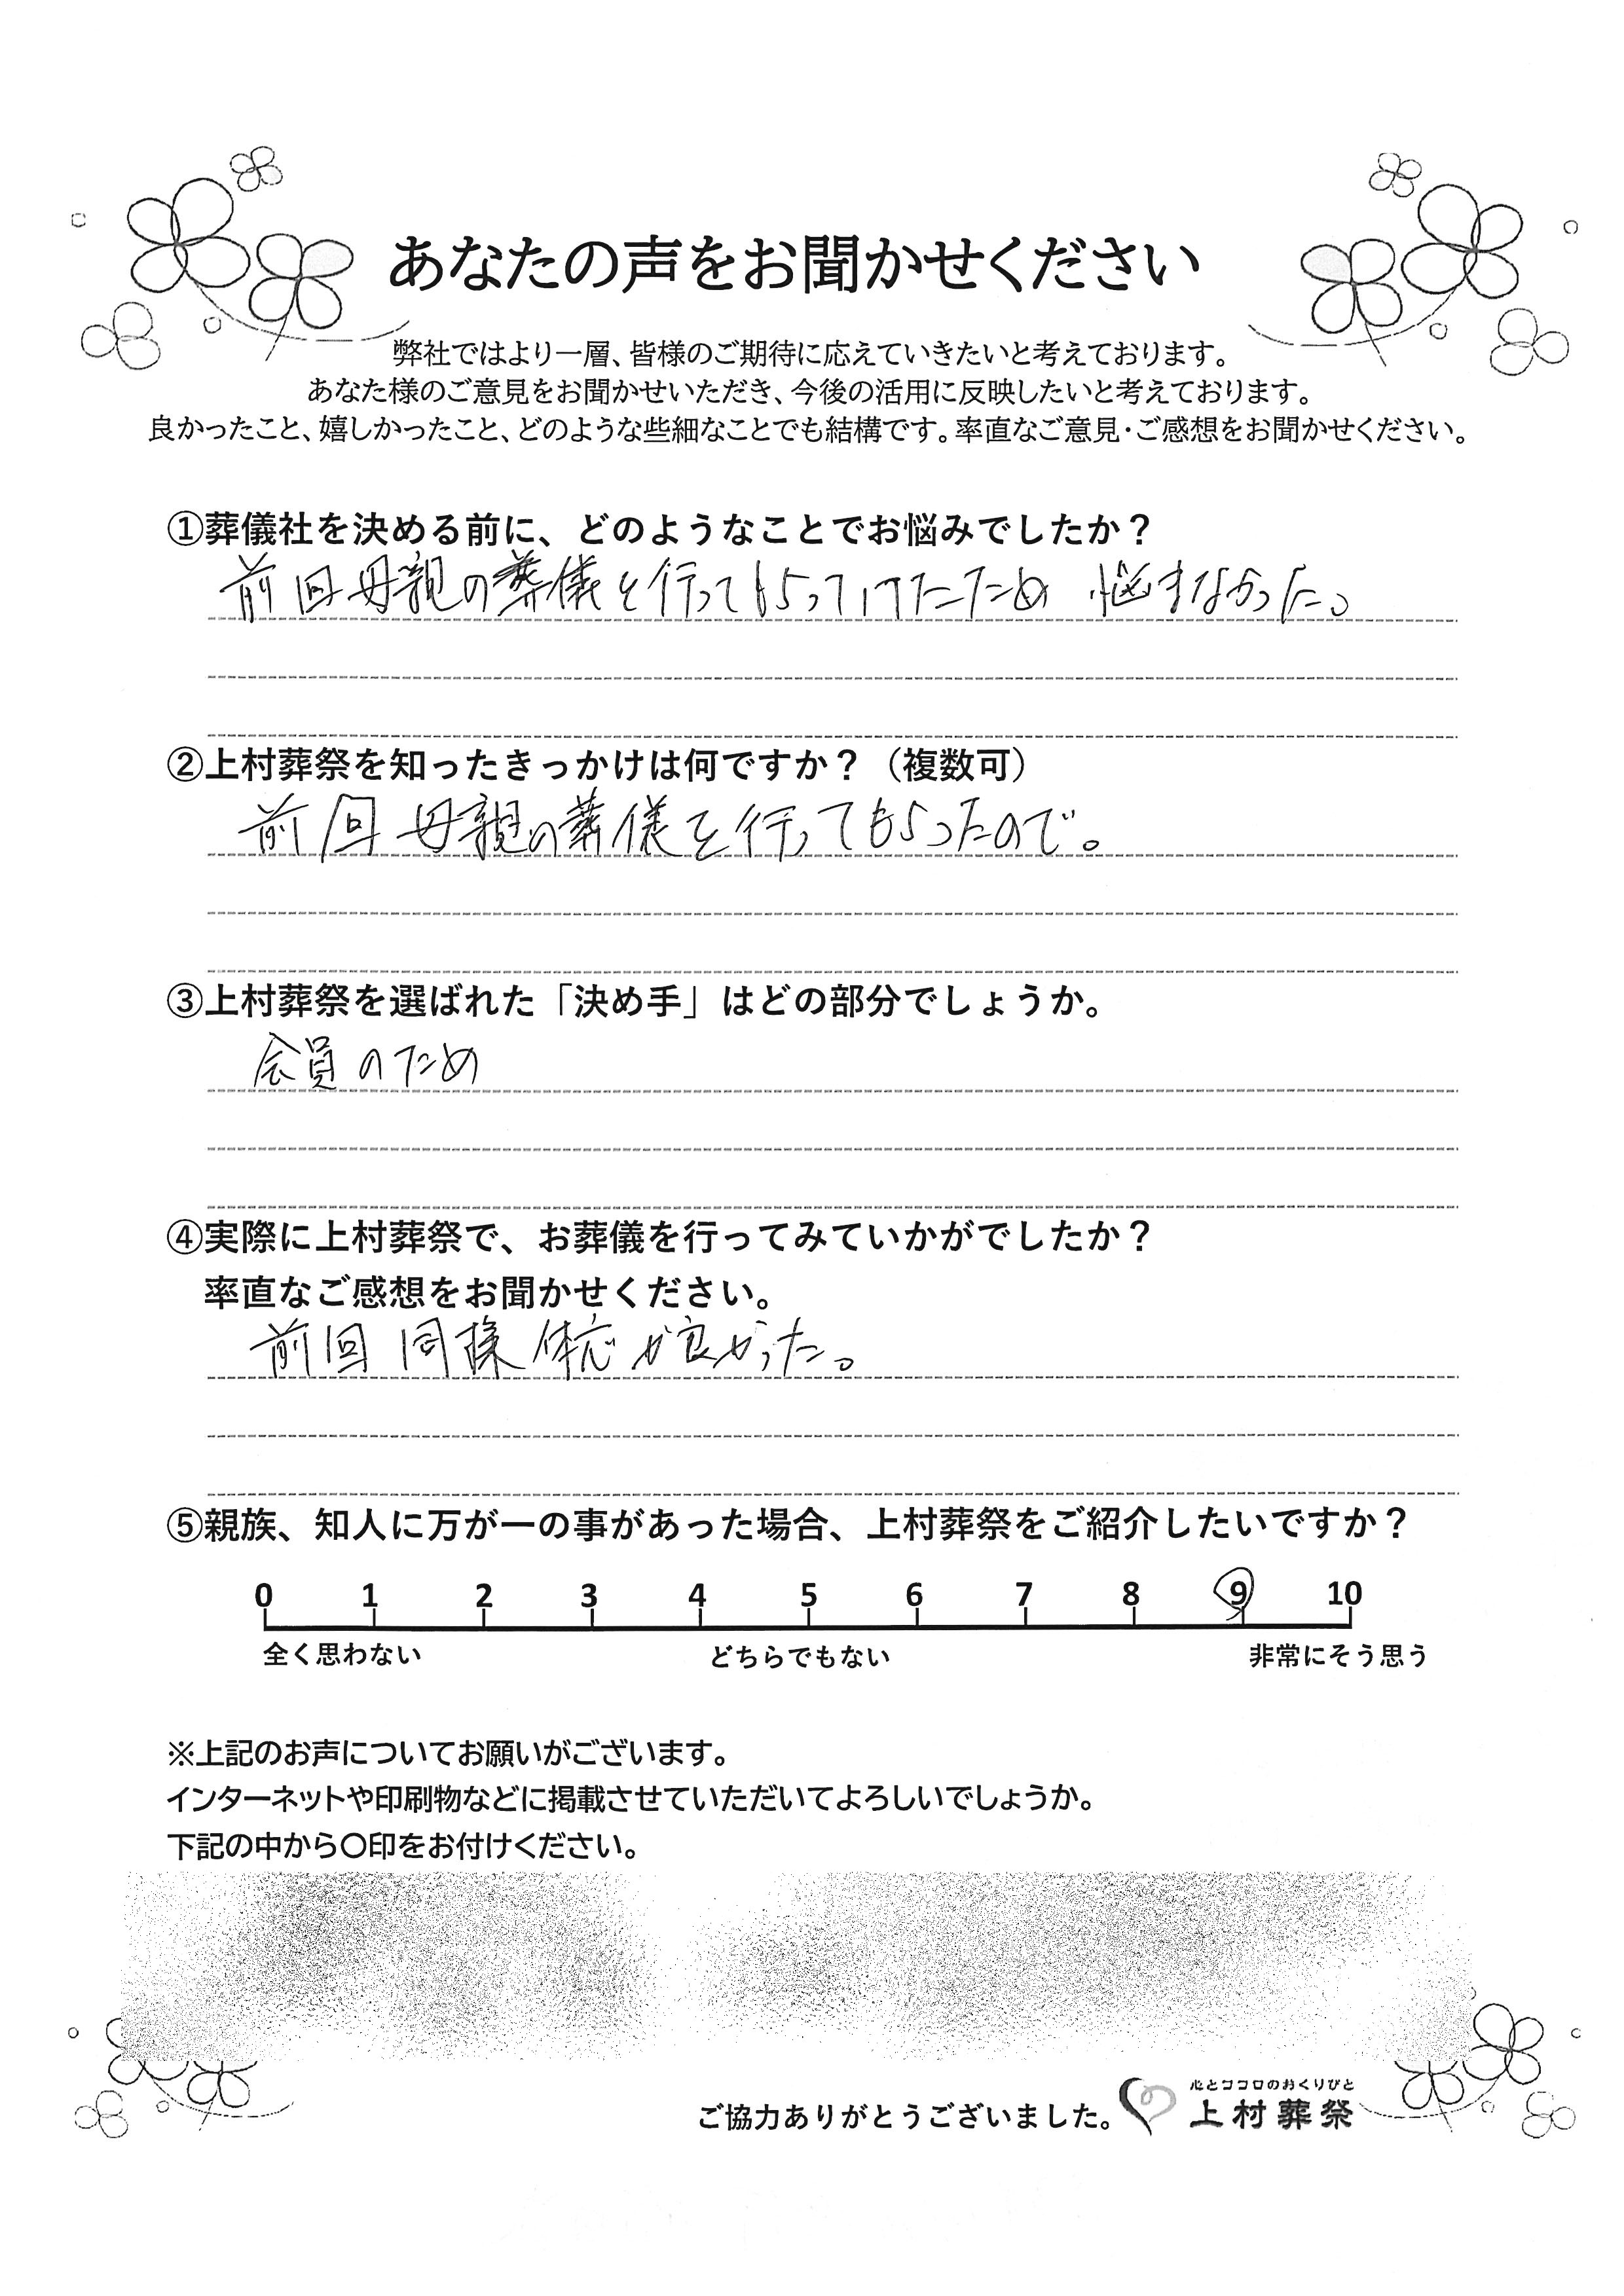 あなたの声をお聞かせください
弊社ではより一層、皆様のご期待に応えていきたいと考えております。
あなた様のご意見をお聞かせいただき、今後の活用に反映したいと考えております。
良かったこと、嬉しかったこと、どのような些細なことでも結構です。率直なご意見・ご感想をお聞かせください。
①葬儀社を決める前に、どのようなことでお悩みでしたか？
前回母親の葬儀を行ってもらっていたため 悩まなかった。
②上村葬祭を知ったきっかけは何ですか？（複数可）
前回母親の葬儀を行ってもらったので。
③上村葬祭を選ばれた「決め手」はどの部分でしょうか。
会員のため
④実際に上村葬祭で、お葬儀を行ってみていかがでしたか？
率直なご感想をお聞かせください。
前回同様 対応が良かった。
⑤親族、知人に万が一の事があった場合、上村葬祭をご紹介したいですか？
0 1 2 3 4 5 6 7 8 9 10
全く思わない どちらでもない 非常にそう思う
※上記のお声についてお願いがございます。
インターネットや印刷物などに掲載させていただいてよろしいでしょうか。
下記の中から〇印をお付けください。
心とココロのおくりびと
ご協力ありがとうございました。 上村葬祭